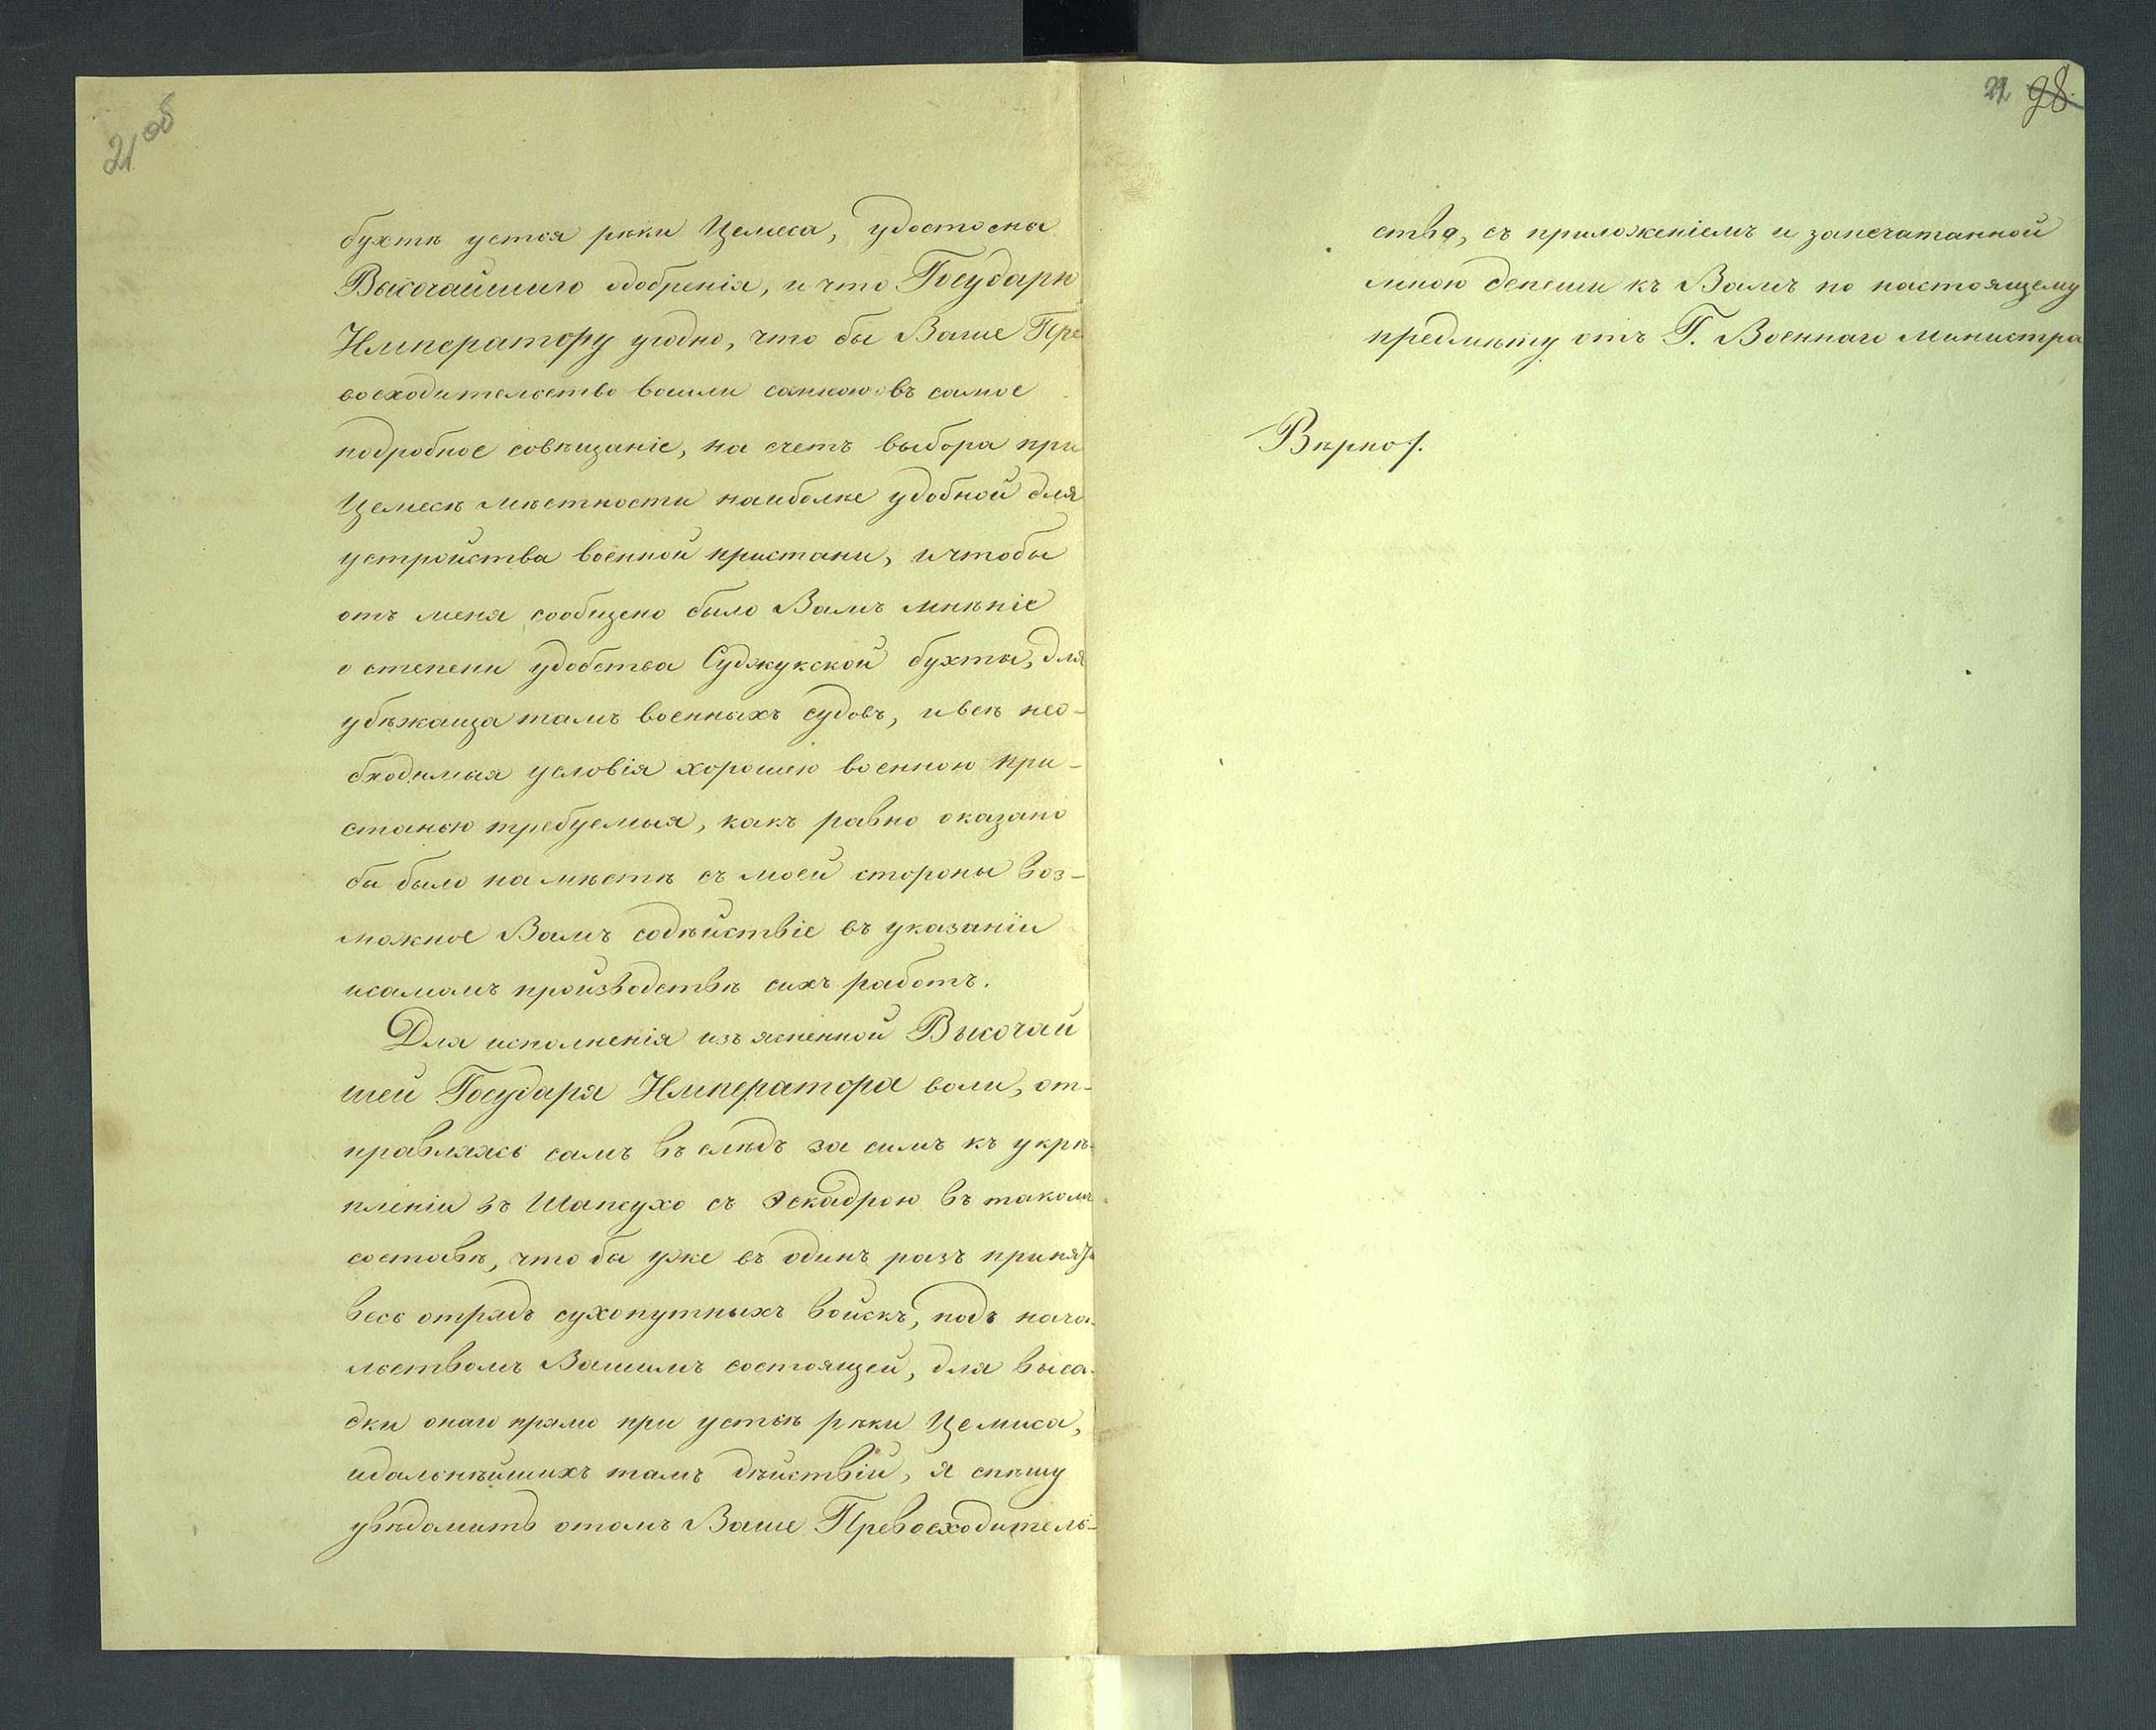 21 об
бухтѣ устья рѣки Цемеса, удостоена
Высочайшаго одобренія, и что Государю
Императору угодно, что бы Ваше Пре
восходительство вошли со мною въ самое
подробное совѣщаніе, на счетъ выбора при
Цемесѣ мѣстности наиболѣе удобной для
устройства военной пристани, и чтобы
отъ меня сообщено было Вамъ мнѣніе
о степени удобства Суджукской бухты, для
убѣжища тамъ военныхъ судовъ, и всѣ нео-
бходимыя условія хорошею военною при-
станью требуемыя, какъ равно оказано
бы было на мѣстѣ съ моей стороны воз-
можное Вамъ содѣйствіе въ указаніи
и самомъ производствѣ сихъ работъ.
Для исполненія изъясненной Высочай
шей Государя Императора воли, от-
правляясь самъ въ слѣдъ за симъ къ укрѣ-
пленію въ Шапсухо съ Эскадрою въ такомъ
составѣ, что бы уже въ одинъ разъ принять
весь отрядъ сухопутныхъ войскъ, подъ нача-
льствомъ Вашимъ состоящей, для выса-
дки онаго прямо при устьѣ рѣки Цемиса,
и дальнѣйшихъ тамъ дѣйствій, я спѣшу
увѣдомить о томъ Ваше Превосходитель-
22 98.
ство, съ приложеніемъ и запечатанной
мною депеши къ Вамъ по настоящему
предмѣту отъ Г. Военнаго Министра
Вѣрно